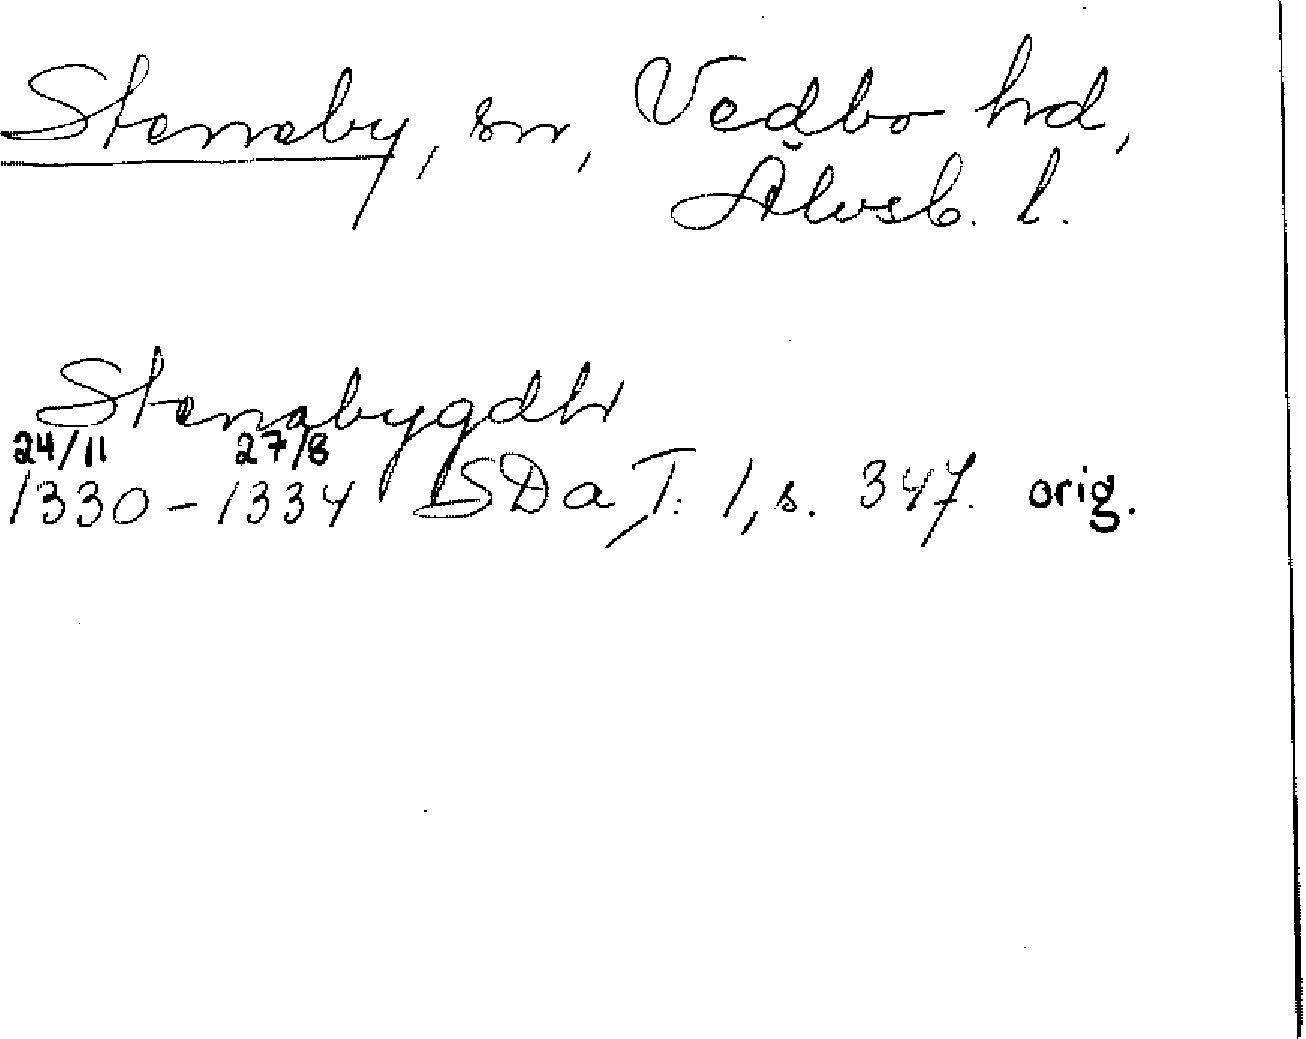 Steneby, sn, Vedbo hd,
Älvsb. l.
Stenabygdhr
24/11 27/8
1330-1334 SDa, T. 1, s. 347. orig.